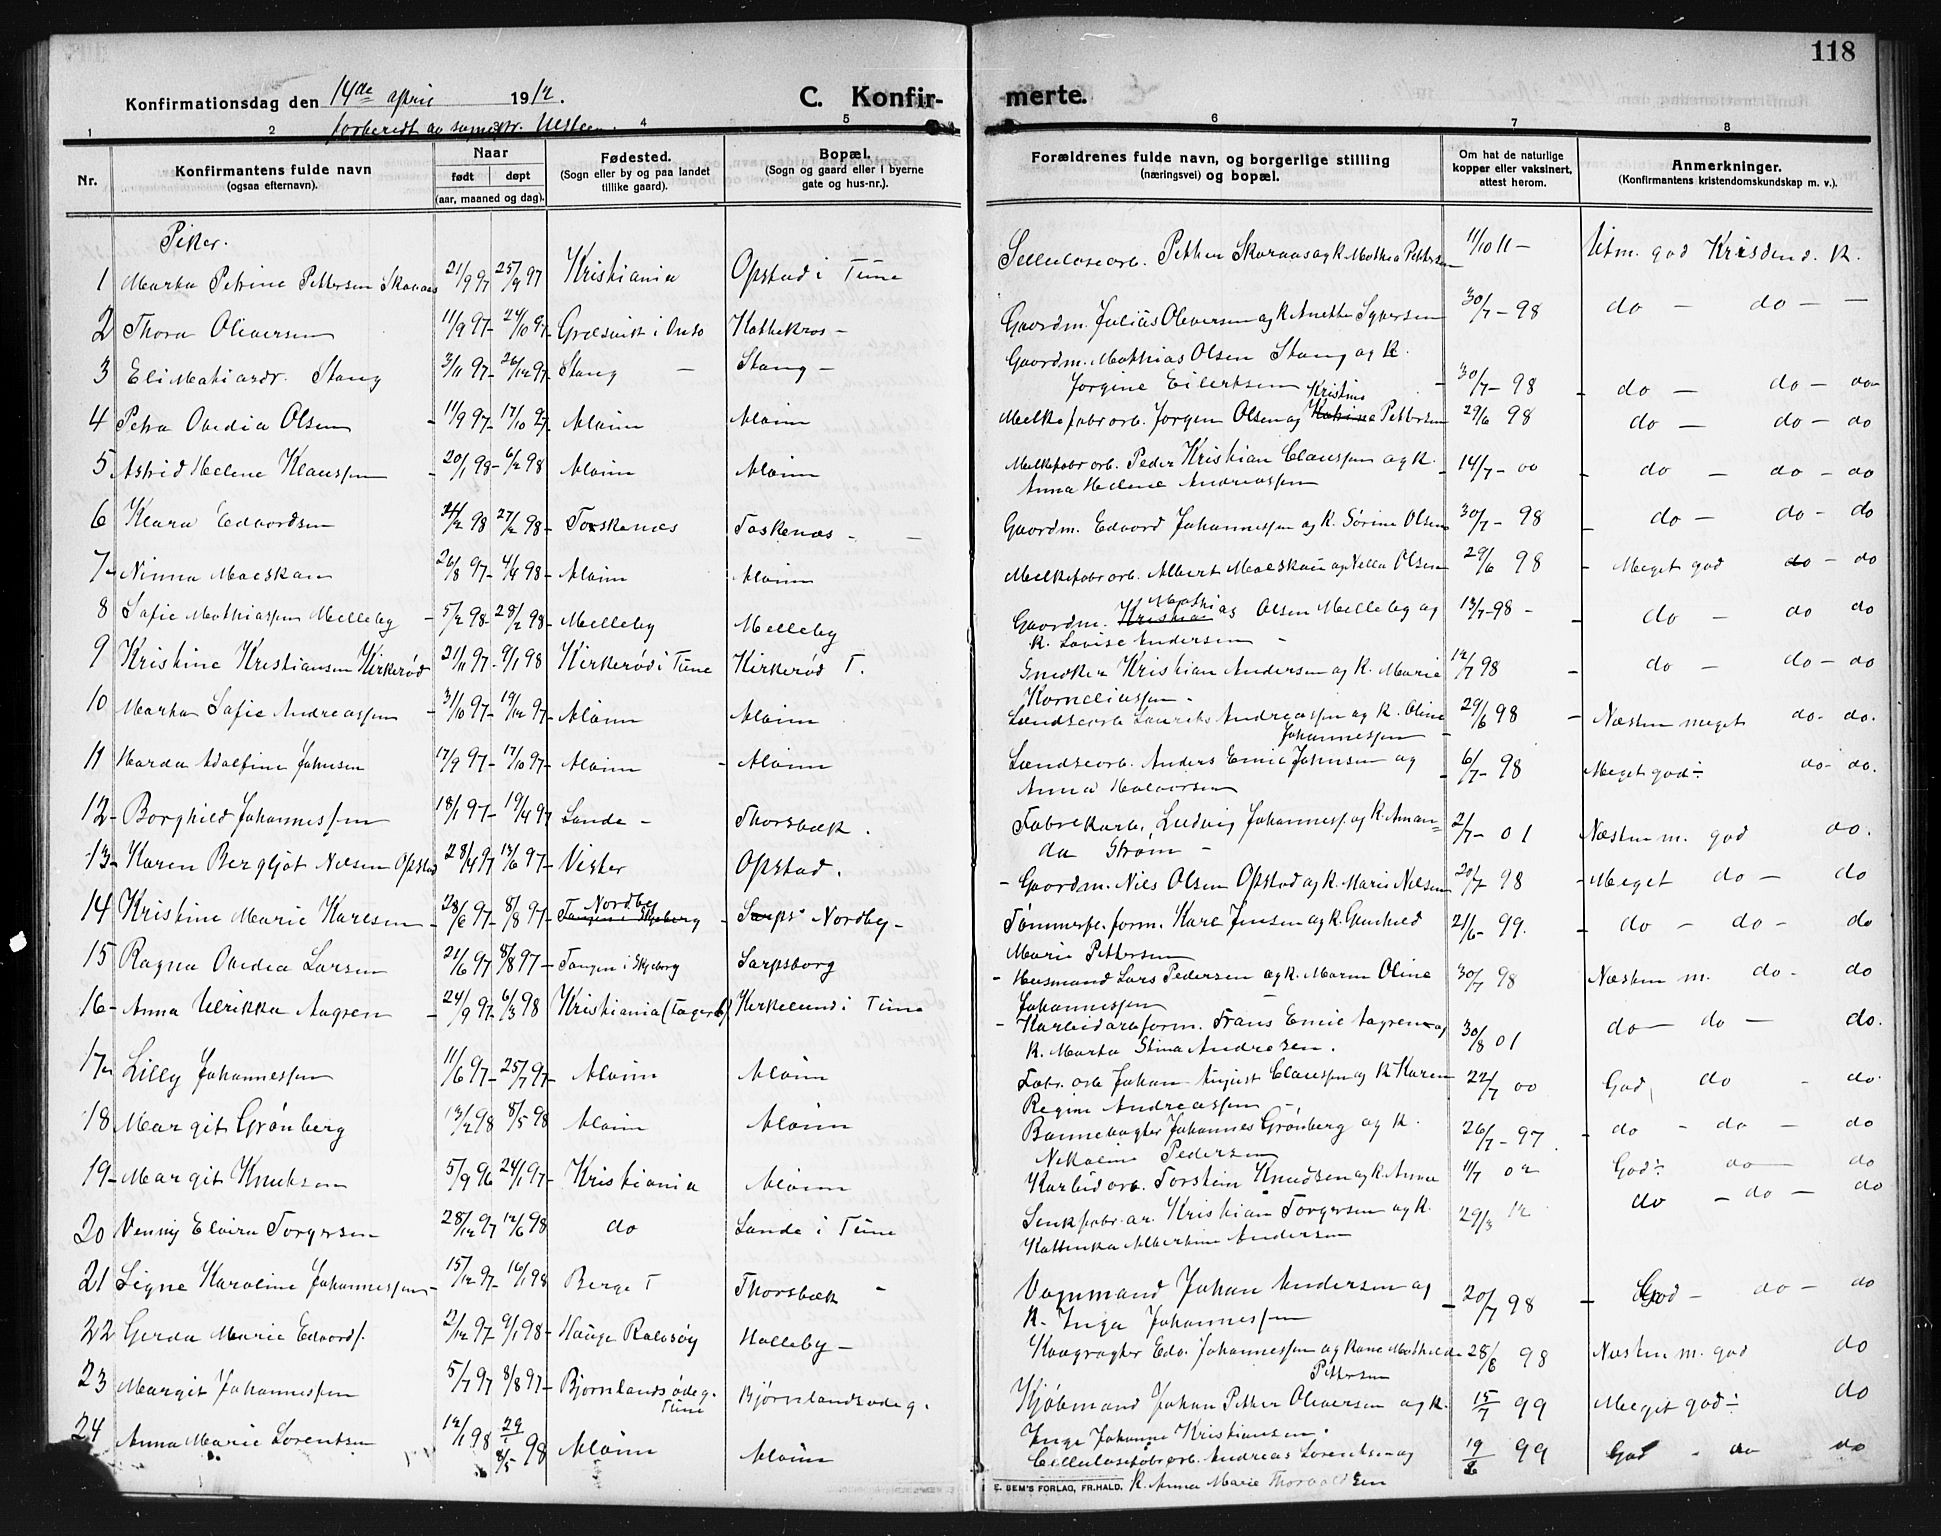 118
Konfirmationsdag den 14de april 1912. C. Konfirmerte.
forberedt av sogneptr.
1 2 3 4 5 6 7 8
Nr.
Konfirmantens fulde navn (ogsaa efternavn).
Naar født døpt (aar, maaned og dag).
Fødested. (Sogn eller by og paa landet tillike gaard).
Bopæl. (Sogn og gaard eller i byerne gate og hus-nr.).
Forældrenes fulde navn, og borgerlige stilling (næringsvei) og bopæl.
Om hat de naturlige kopper eller vaksinert, attest herom.
Anmerkninger. (Konfirmantens kristendomskundskap m. v.).
Piker.
1 Marta Petrine Pettersen Skaraas 21/9 97 25/9 97 Kristiania Opstad i Tune Sellulosearb. Petter Skaraas og k. Mathea Pettersen 11/10 11 - Utm. god Kristend. k.
2 Thora Oliversen 11/9 97 - 24/10 97 - Græsvik i Onsø Hattekros - Gaardm. Julius Oliversen og k. Anette Syversen 30/7 - 98 do - do - -
3 Eli Mathiasdr. Stang 3/11 97 - 26/12 97 - Stang - Stang - Gaardm. Mathias Olsen Stang og k.
Jorgine Eilertsen - 30/7 - 98 - do - do - do -
4 Petra Ovedia Olsen - 11/9 97 - 17/10 97 - Aloim Aloim Melkefabr arb. Jørgen Olsen og Kristine Pettersen 29/6 98 do - do - do
5 Astrid Helene Klaussen - 20/1 98 - 6/2 98 - Aloim Aloim Melkefabr arb. Peder Kristian Claussen og k.
Anna Helene Andreassen - 14/7 - 00 - do - do - do
6 Klara Edvardsen 24/2 98 27/2 98 - Torskenæs Taskenæs - Gaardm. Edvard Johannessen og k. Sørine Olsen 30/7 - 98 - do - do - do
7 - Ninna Moeskau 26/8 97 - 4/4 98 - Aloim Aloim Melkefabr arb. Albert Moeskau og Nella Olsen 29/6 98 - Meget god do - do
8 Sofie Mathiassen Melleby - 5/2 98 - 28/2 98 - Melleby Melleby Gaardm. Mathias Olsen Melleby og
k. Lovise Andersen - 13/7 - 98 - - do - do do
9 Kristine Kristiansen Kirkerød 21/11 97 - 9/1 98 Kirkerød i Tune Kirkerød T. Snedker Kristian Andersen og k. Marie
Korneliussen - 12/7 98 - do - do - do
10 Marta Sofie Andreassen - 31/10 97 - 19/12 97 - Aloim Aloim Landsearb Laurits Andreassen og k. Oline
Johannessen - 29/6 98 - Næsten meget do - do.
11 Harda Adolfine Johnsen 17/9 97 - 17/10 97 - Aloim - Aloim Landsearb. Anders Emil Johnsen og
Anna Halvorsen - 6/7 - 98 Meget god ÷ do - do.
12 - Borghild Johannessen 18/1 97 - 19/4 97 Sande - Thorsbæk. Fabrikarb. Ludvig Johanness. og k. Aman-
da Strøm - 2/7 - 01 Næsten m. god do.
13 - Karen Bergljot Nilsen Opstad 28/4 97 13/6 97 - Vister Opstad. - Gaardm. Nils Olsen Opstad og k. Marie Nilsen 20/7 - 98 - Meget do - do
14 Kristine Marie Karlsen - 28/6 97 - 8/8 97 - Nordby Tangen i Skjeberg - Sarps Nordby - Tømmerfl. form. Karl Jensen og k. Gunhild
Marie Pettersen 21/6 - 99. - do - do - do
15 Ragna Ovedia Larsen 21/6 97 8/8 97 - Tangen i Skjeberg Sarpsborg - Husmand Lars Pedersen og k. Maren Oline
Johannessen 30/7 98 Næsten m. do - do
16 - Anna Ulrikka Aagren - 24/9 97 - 6/3 98 Kristiania Kirkelund i Tune - Karbidarb form. Frans Emil Aagren og
k. Marta Stina Andresen. 30/8 01 do - do - do.
17 - Lilly Johannessen 11/6 97 - 25/7 97 - Aloim Aloim Fabr. arb Johan August Claussen og k Karen
Regine Andreassen - 22/7 00 God do - do.
18 Margit Grønberg 13/2 98 8/5 98 Aloim Aloim Banevogter Johannes Grønberg og k.
Nikoline Pedersen 26/7 - 97 - do - do - do
19 - Margit Knutsen 5/9 96 24/1 97 - Kristiania Aloim Karbid arb. Torstein Knudsen og k. Anna 11/7 02 God ÷ do - do
20 Venny Elvira Torgersen - 28/12 97 12/6 98 do Sande i Tune Kristian Torgersen og k.
Kattinka Albertine Andersen 29/3 12 do - do - do
21 Signe Karoline Johannessen - 15/12 97 - 16/1 98 Berge T Thorsbæk - Vognmand Johan Andersen og
k. Inga Johannessen - 20/7 98 - God - do - do
22 Gerda Marie Edvards. 2/12 97 - 9/1 98 - Hauge Rolvsøy Halleby - Edv. Johannessen og Kone Mathilde
Pettersen 28/8 98 Næsten m. god do
23 Margit Johannessen 5/7 97 8/8 97 - Bjørnlandsødeg. Tune Bjørnlandsødeg. Kjøbmand Johan Petter Oliversen og k.
Inga Johanne Kristiansen. 15/7 99 Meget god ÷ do
24 Anna Marie Lorentsen 12/1 98 29/1 8/5 98 Aloim Aloim Cellulosefabr arb. Andreas Lorentsen og
k. Anna Marie Thorvaldsen 19/8 99 God - do do
E. SEM'S FORLAG, FR.HALD.